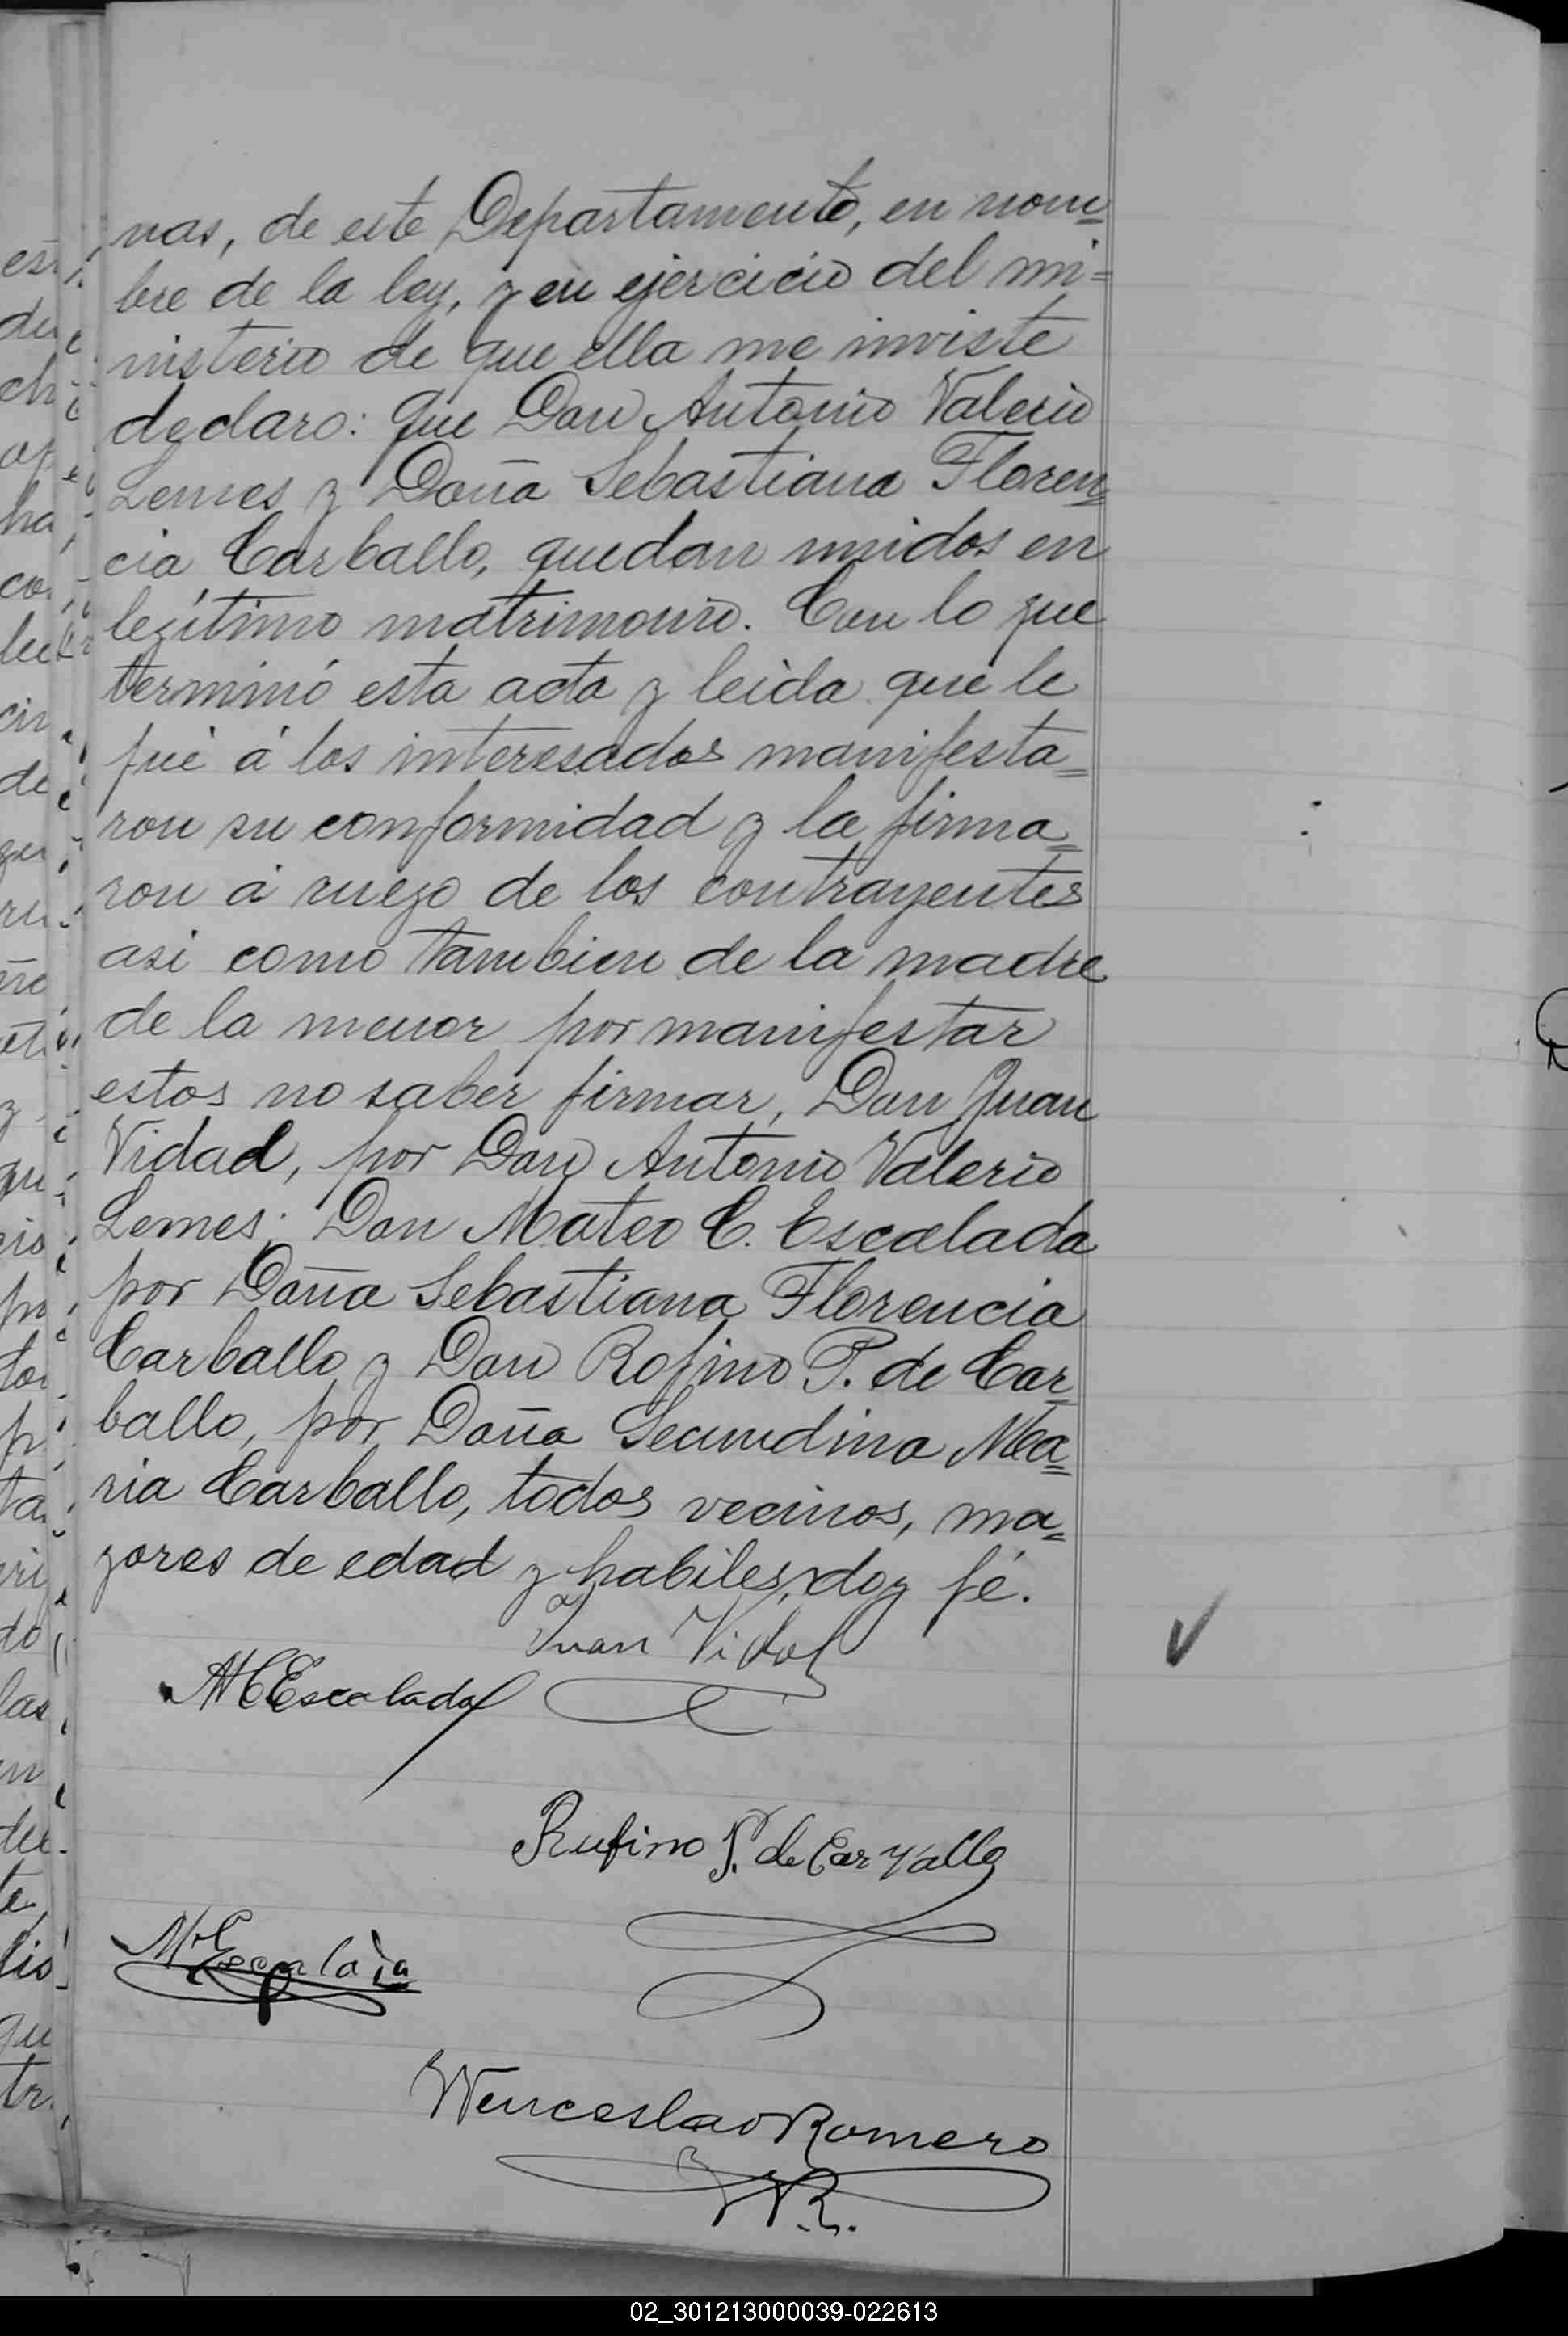 nas, de este Departamento, en nom=
bre de la ley, y en ejercicio del mi=
nisterio de que ella me inviste
declaro: que Don Antonio Valerio
Lemes y Doña Sebastiana Floren=
cia Carballo, quedan unidos en
legítimo matrimonio. Con lo que
terminó esta acta y leida que le
fué á los interesados manifesta=
ron su conformidad y la firma=
ron á ruego de los contrayentes
asi como tambien de la madre
de la menor por manifestar
estos no saber firmar, Don Juan
Vidad, por Don Antonio Valerio
Lemes; Don Mateo C. Escalada
por Doña Sebastiana Florencia
Carballo y Don Rofino P. de Car=
ballo, por Doña Secundina Ma=
ria Carballo, todos vecinos, ma=
yores de edad y habiles, doy fé.
Juan Vidal
M C Escalada
Rufino P. de Carvallo
Wenceslao Romero
02_301213000039-022613